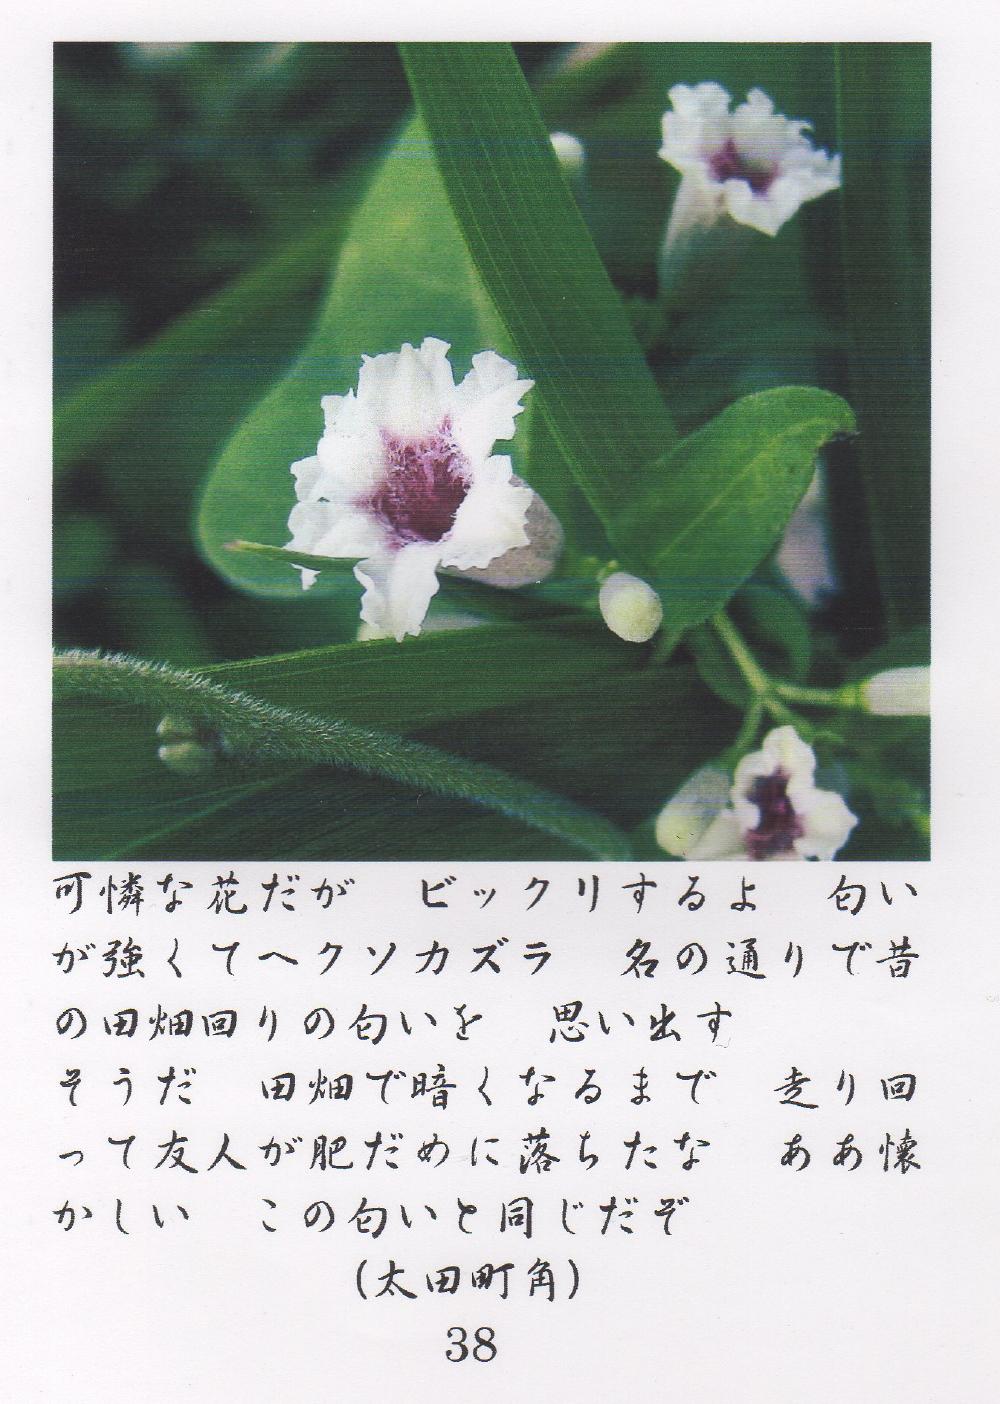 可憐な花だが　ビックリするよ　匂い
が強くてヘクソカズラ　名の通りで昔
の田畑回りの匂いを　思い出す
そうだ　田畑で暗くなるまで　走り回
って友人が肥だめに落ちたな　ああ懐
かしい　この匂いと同じだぞ
(太田町角)
38